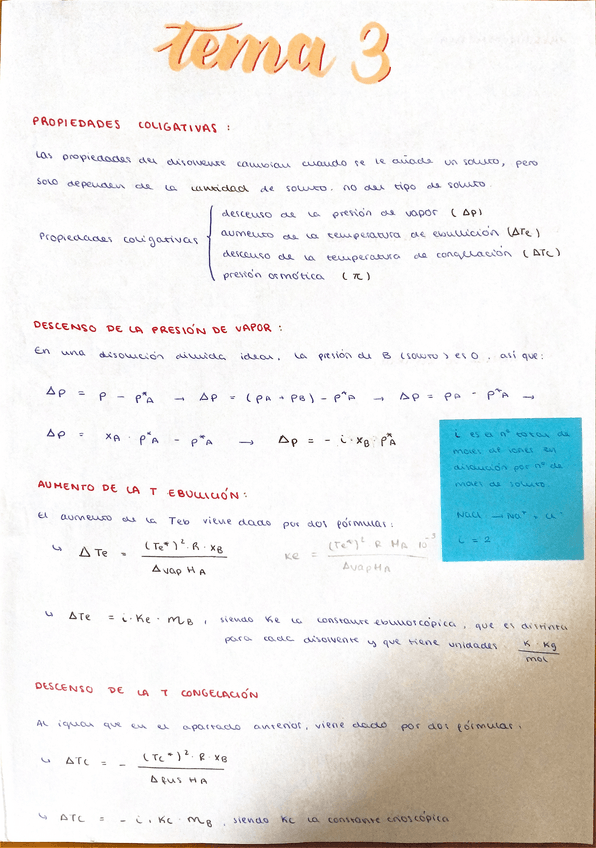 tema 3
PROPIEDADES COLIGATIVAS :
Las propiedades del disolvente cambian cuando se le añade un soluto, pero
solo dependen de la cantidad de soluto. no del tipo de soluto.
Propiedades coligativas
descenso de la presión de vapor ( Δp)
aumento de la temperatura de ebullición (ΔTe )
descenso de la temperatura de congelación ( ΔTc )
presión osmótica ( π )
DESCENSO DE LA PRESIÓN DE VAPOR :
En una disolución diluida ideal, la presión de B (soluto) es 0, así que:
Δp = p - p*A → Δp = (pA + pB) - p*A → Δp = pA - p*A →
Δp = xA · p*A - p*A → Δp = - i · xB · p*A
i es a nº total de
moles de iones en
disolución por nº de
moles de soluto
NaCl → Na+ + Cl-
i = 2
AUMENTO DE LA T EBULLICIÓN :
El aumento de la Teb viene dado por dos fórmulas :
↳ ΔTe = (Te*)² · R · xB / Δvap HA
Ke = (Te*)² R MA 10⁻³ / ΔvapHA
↳ ΔTe = i · Ke · mB , siendo Ke la constante ebulloscópica, que es distinta
para cada disolvente y que tiene unidades K · Kg / mol
DESCENSO DE LA T CONGELACIÓN
Al igual que en el apartado anterior, viene dado por dos fórmulas :
↳ ΔTc = - (Tc*)² · R xB / Δfus HA
↳ ΔTc = - i · Kc · mB , siendo Kc la constante crioscópica